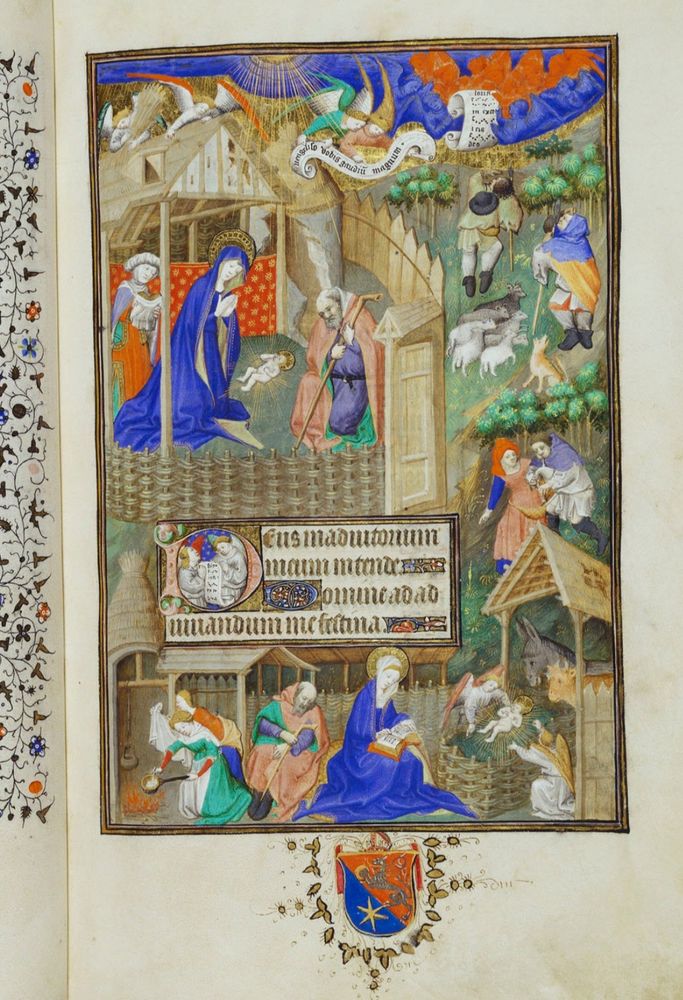 vobis gaudiũ magnum
deo
Deus in adiutorium
meum intende
Domine ad ad
iuuandum me festina